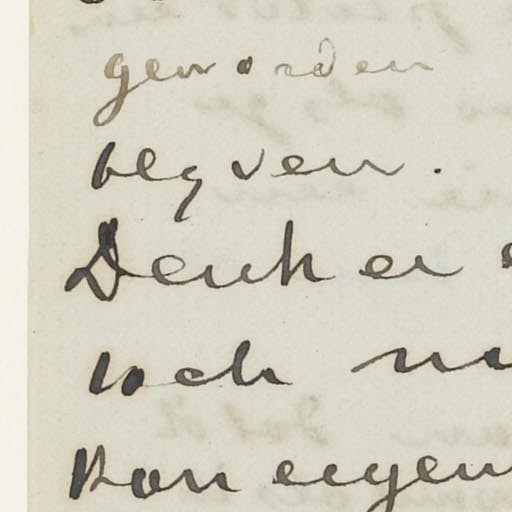 geworden
blyven.
Denk er
toch
Kon eigen